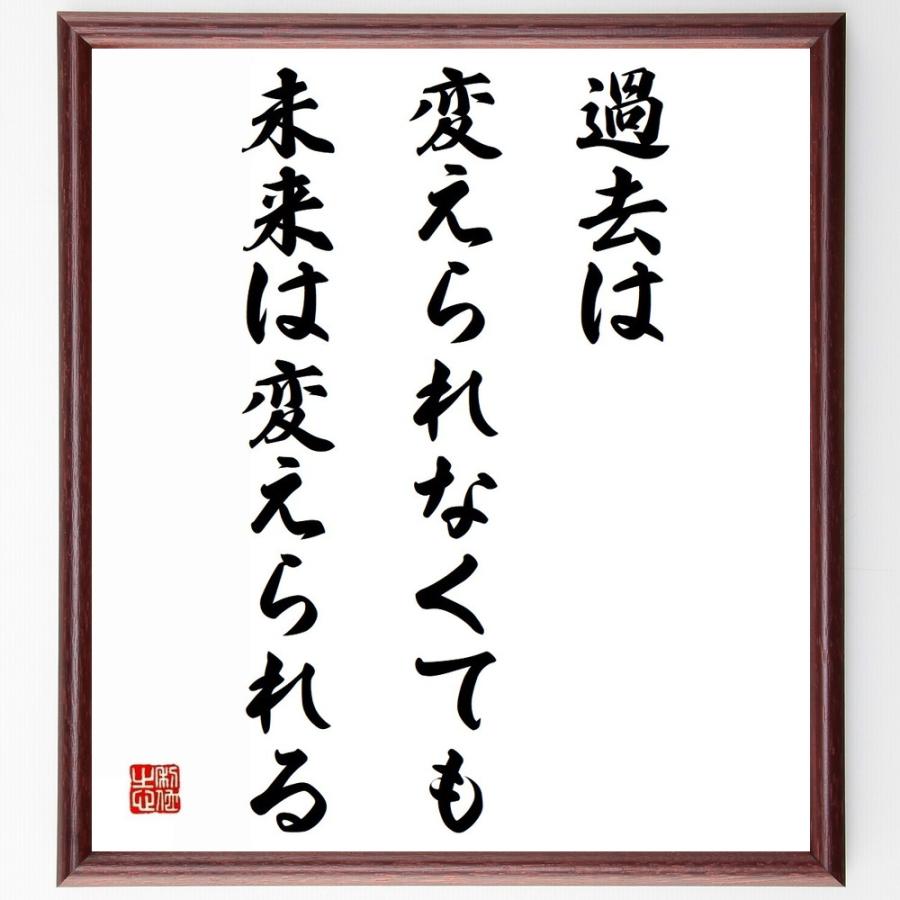 過去は
変えられなくても
未来は変えられる